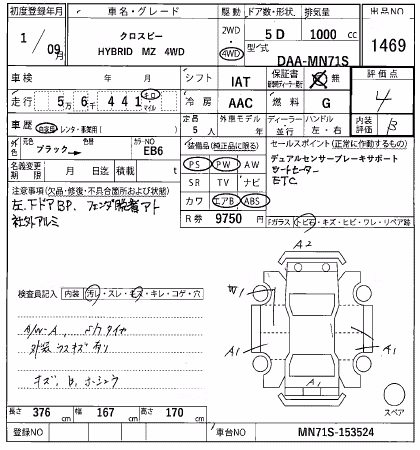 初度登録年月 車名・グレード 駆動 ドア数・形状 排気量 出品NO
1/09月 クロスビー HYBRID MZ 4WD 2WD・4WD 5 D 1000 cc 1469
型式 DAA-MN71S
車検 年 月 シフト IAT 保証書 無 評価点
走行 5万6千441 キロ・マイル 冷房 AAC 燃料 G 4
車歴 自家用・レンタ・事業用( ) 定員 5人 外車モデル 年 ディーラー 並行 ハンドル 左・右 内装評価 B
外色 元色 ブラック 色替 カラーNO EB6
装備品(純正品に限る) セールスポイント(正常に動作するもの)
名義変更期限 月 日迄 積載 t PS PW AW デュアルセンサーブレーキサポート
シートヒーター
ETC
注意事項(欠品・修復・不具合箇所および状態) SR TV ナビ
左.下ドアBP、フェンダ脱着アト カワ エアB ABS
社外アルミ R券 9750円 Fガラス トビ石・キズ・ヒビ・ワレ・リペア跡
A2
検査員記入 内装 汚レ・スレ・キズ・キレ・コゲ・穴
W1
A1 A1
A/W-A、
外装 ウスキズ有リ
A1
キズ、B、ホシュウ
スペア
長さ 376 cm 幅 167 cm 高さ 170 cm
登録NO 車台NO MN71S-153524